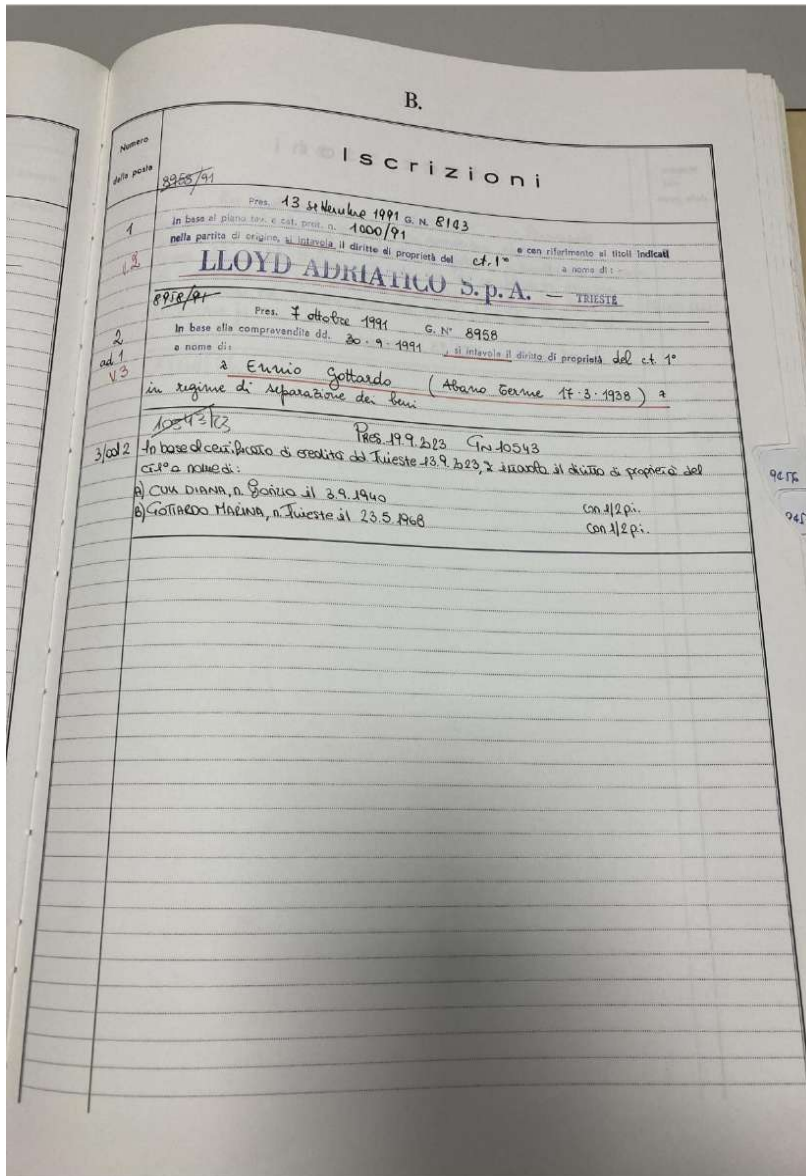 B.
Numero
della posta
Iscrizioni
8958/91
Pres. 13 settembre 1991 G. N. 8143
1
In base al piano tav. e cat. prot. n. 1000/91 e con riferimento ai titoli indicati
nella partita di origine, si intavola il diritto di proprietà del ct. 1° a nome di:
√2
LLOYD ADRIATICO S. p. A. — TRIESTE
8958/91
Pres. 7 ottobre 1991 G. N° 8958
2
In base alla compravendita dd. 20.9.1991, si intavola il diritto di proprietà del c.t. 1°
ad 1
a nome di:
√3
Ennio Gottardo (Abano Terme 17.3.1938)
in regime di separazione dei beni
10543/23
PRES. 19.9.2023 GN 10543
3/ad 2 In base al certificato di eredità dd Trieste 13.9.2023, si intavola il diritto di proprietà del
ct 1° a nome di:
A) DIANA, n. Gorizia il 3.9.1940 con 1/2 p.i.
B) GOTTARDO MARINA, n. Trieste il 23.5.1968 con 1/2 p.i.
945